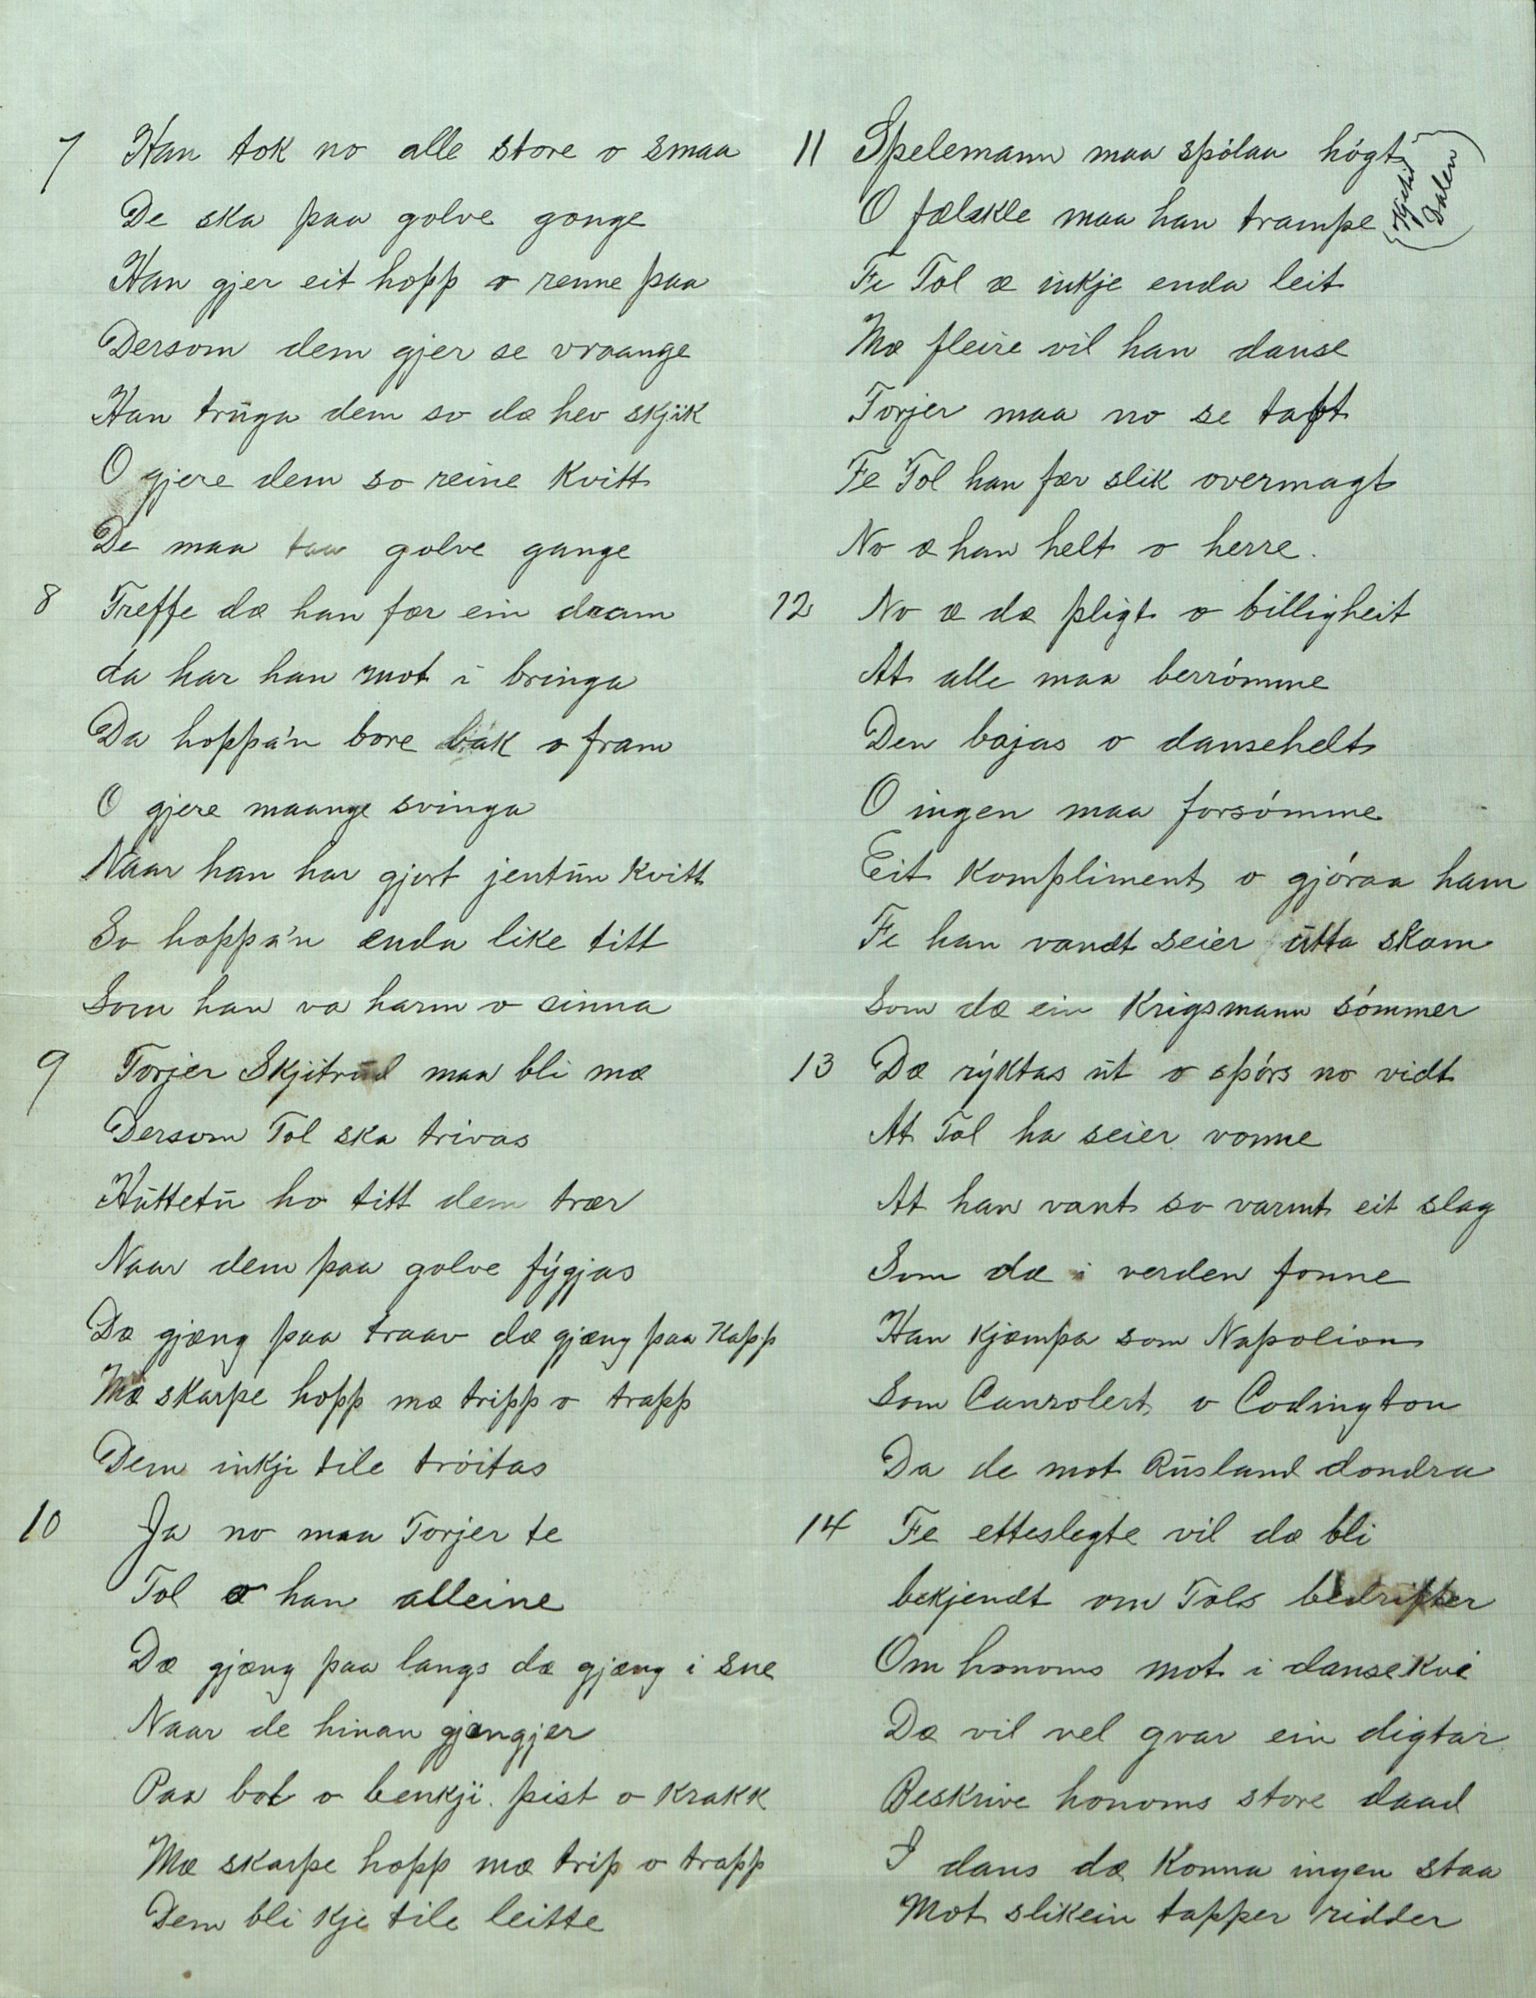 7 Han tok no alle store o smaa
De ska paa golve gonge
Han gjer eit hopp o renne paa
Dersom dem gjer se vraange
Han trŭga dem so dæ hev skjik
O gjere dem so reine kvitt
De maa taa golve gange
8 Treffe dæ han fær ein daam
da har han mot i bringa
Da hoppa'n bore bak o fram
O gjere maange svinga
Naar han har gjort jentŭn kvitt
So hoppa'n enda like titt
Som han va harm o sinna
9 Torjer Skjitrŭd maa bli mæ
Dersom Tol ska trivas
Hŭttetŭ ho titt dem trær
Naar dem paa golve fýgjas
Dæ gjæng paa traav dæ gjæng paa kapp
Mæ skarpe hopp mæ tripp o trapp
Dem inkje tile tróitas
10 Ja no maa Torjer te
Tol æ han alleine
Dæ gjæng paa langs dæ gjæng i sne
Naar de hinan gjængjer
Paa bol o benkji pist o krakk
Mæ skarpe hopp mæ trip o trapp
Dem bli kje tile leitte
11 Spelemann maa spólaa hógt
O fælskle maa han trampe (Kjetil Dalen)
Fe Tol æ inkje enda leit
Mæ fleire vil han danse
Torjer maa no se taft
Fe Tol han fær slik overmagt
No æ han helt o herre.
12 No æ dæ pligt o billigheit
At alle maa berrómme
Den bajas o dansehelt
O ingen maa forsómme
Eit kompliment o gjóraa ham
Fe han vandt seier ŭtta skam
Som dæ ein krigsmann sómmer
13 Dæ rýktas ŭt o spórs no vidt
At Tol ha seier vonne
At han vant so varmt eit slag
Som dæ i verden fonne
Han kjæmpa som Napolion
Som Canrolert o Codington
Da de mot Rŭsland dondra
14 Fe etteslegte vil dæ bli
bekjendt om Tols bedrifter
Om honoms mot i dansekvé
Dæ vil vel gvar ein digtar
Beskrive honoms store daad
I dans dæ konna ingen staa
Mot slikein tapper ridder